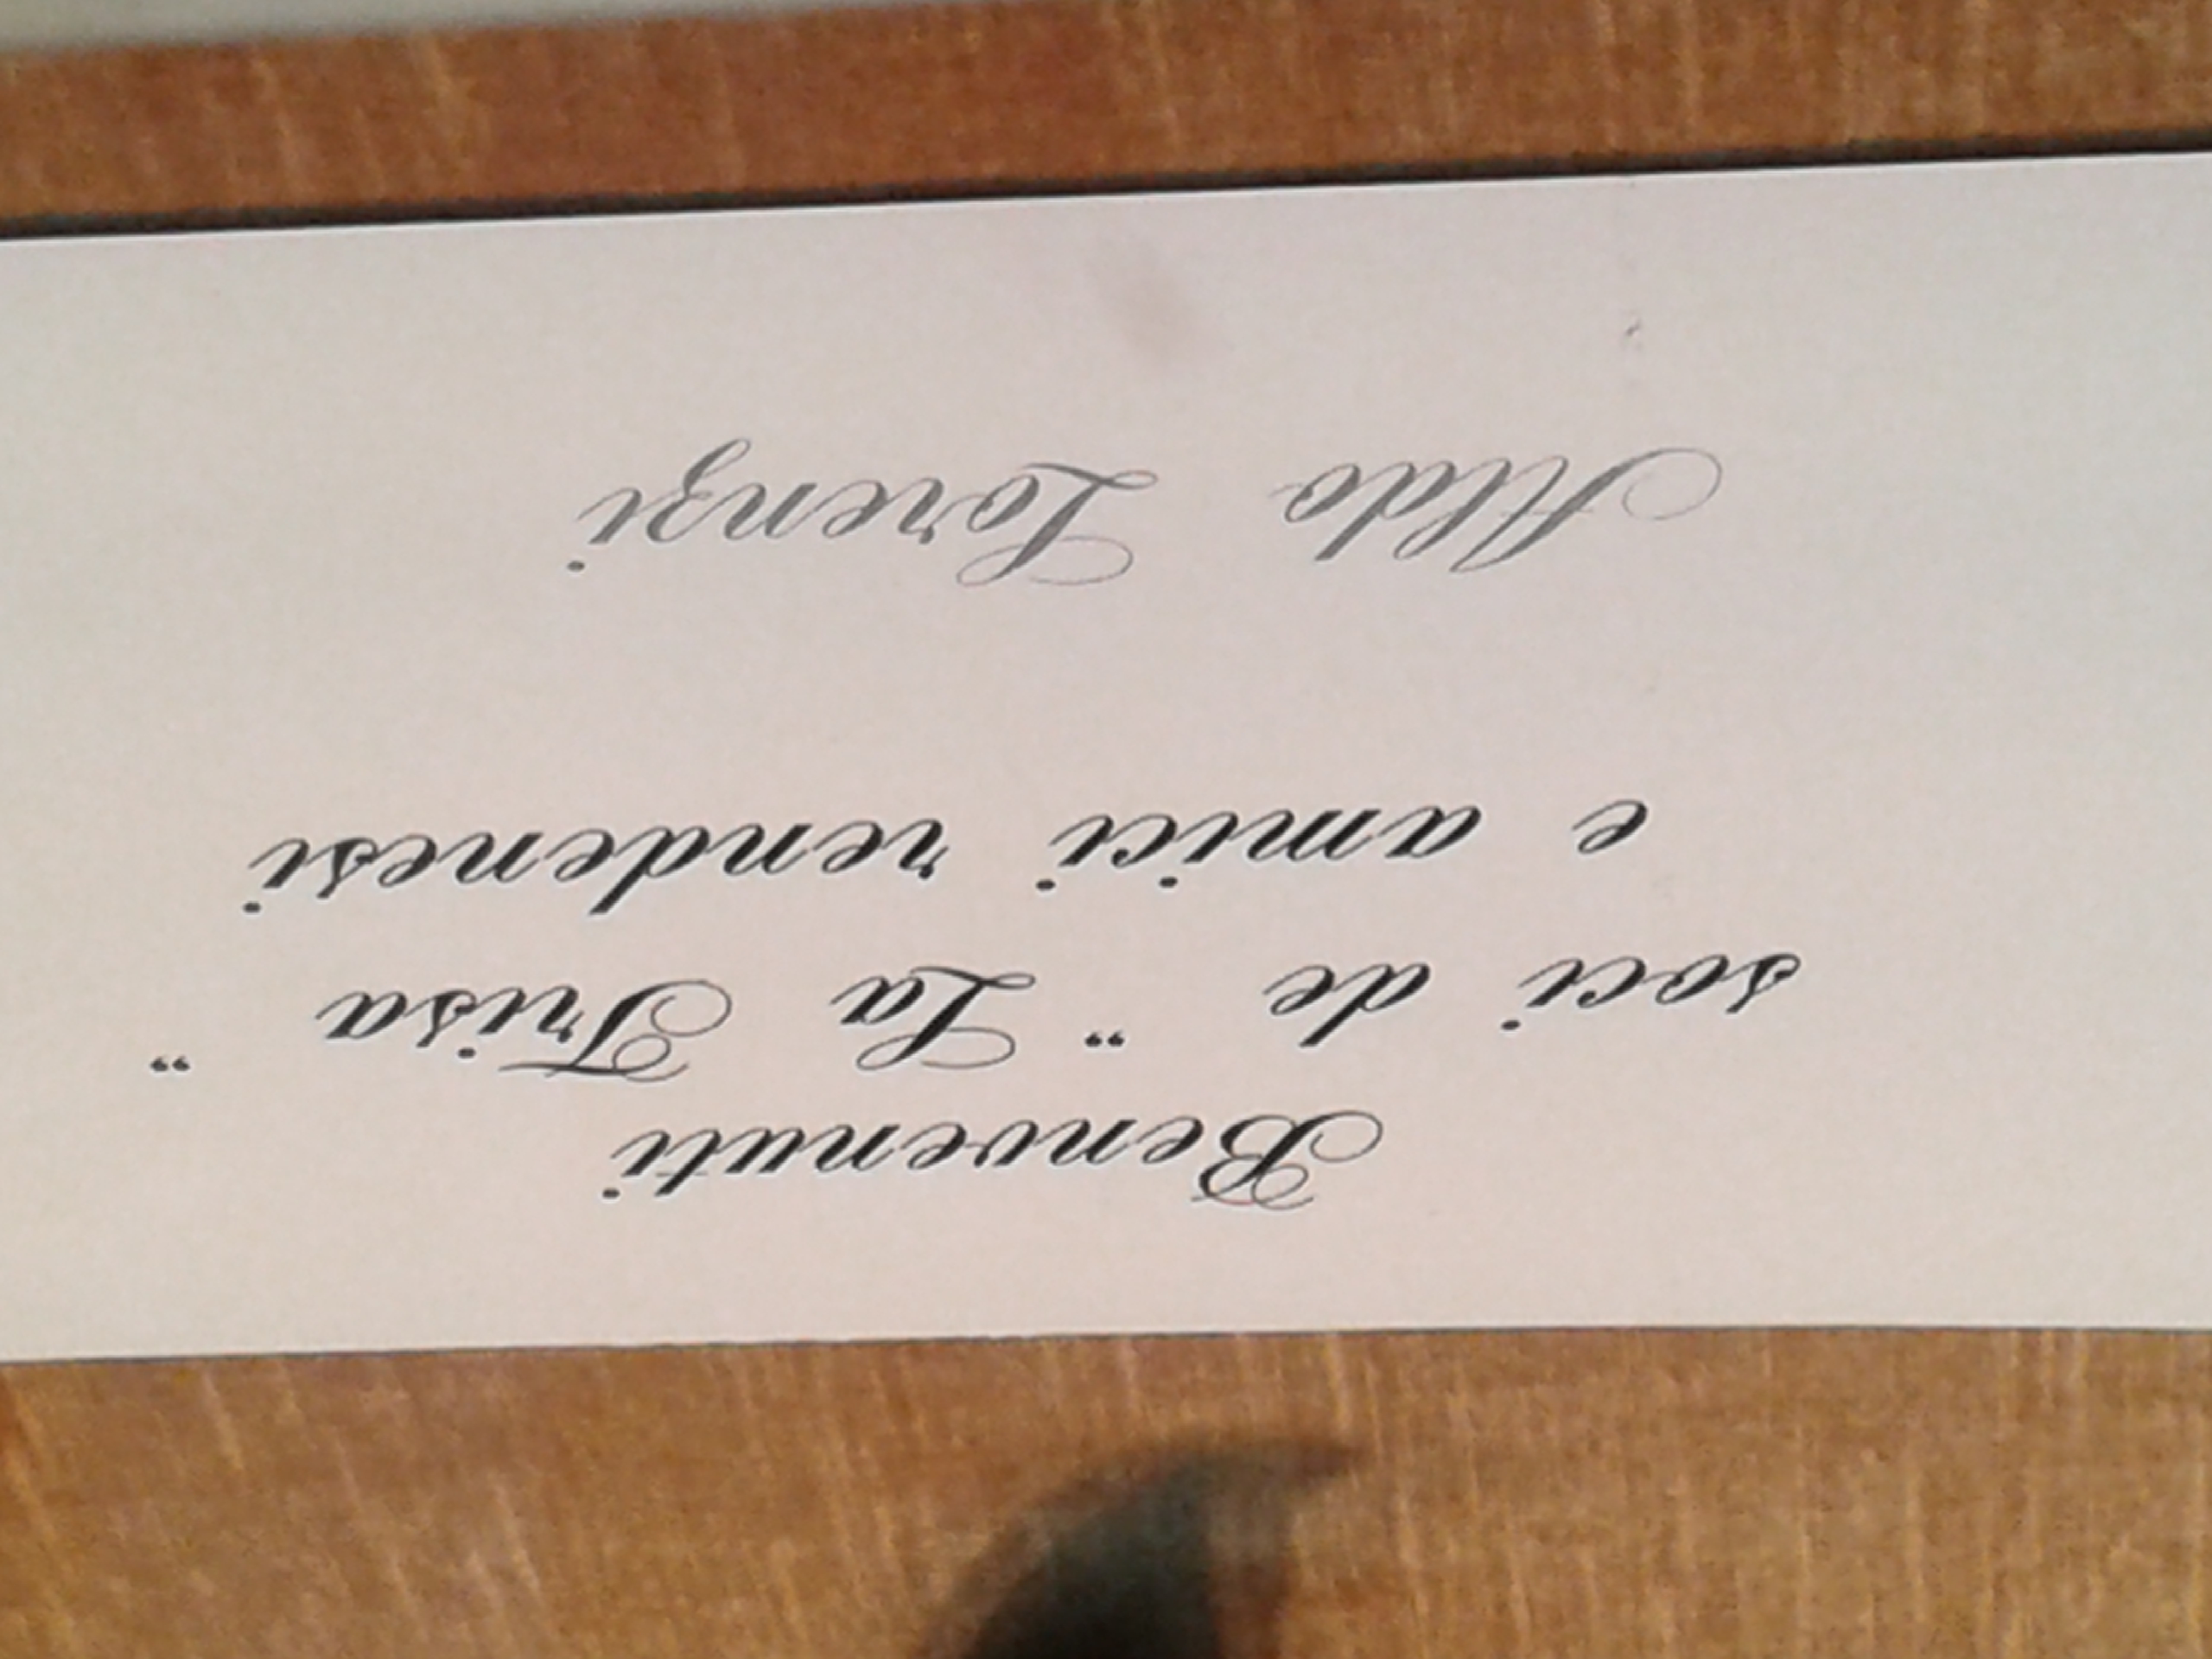 Benvenuti
soci de " La Trisa "
e amici rendenesi
Aldo Lorenzi